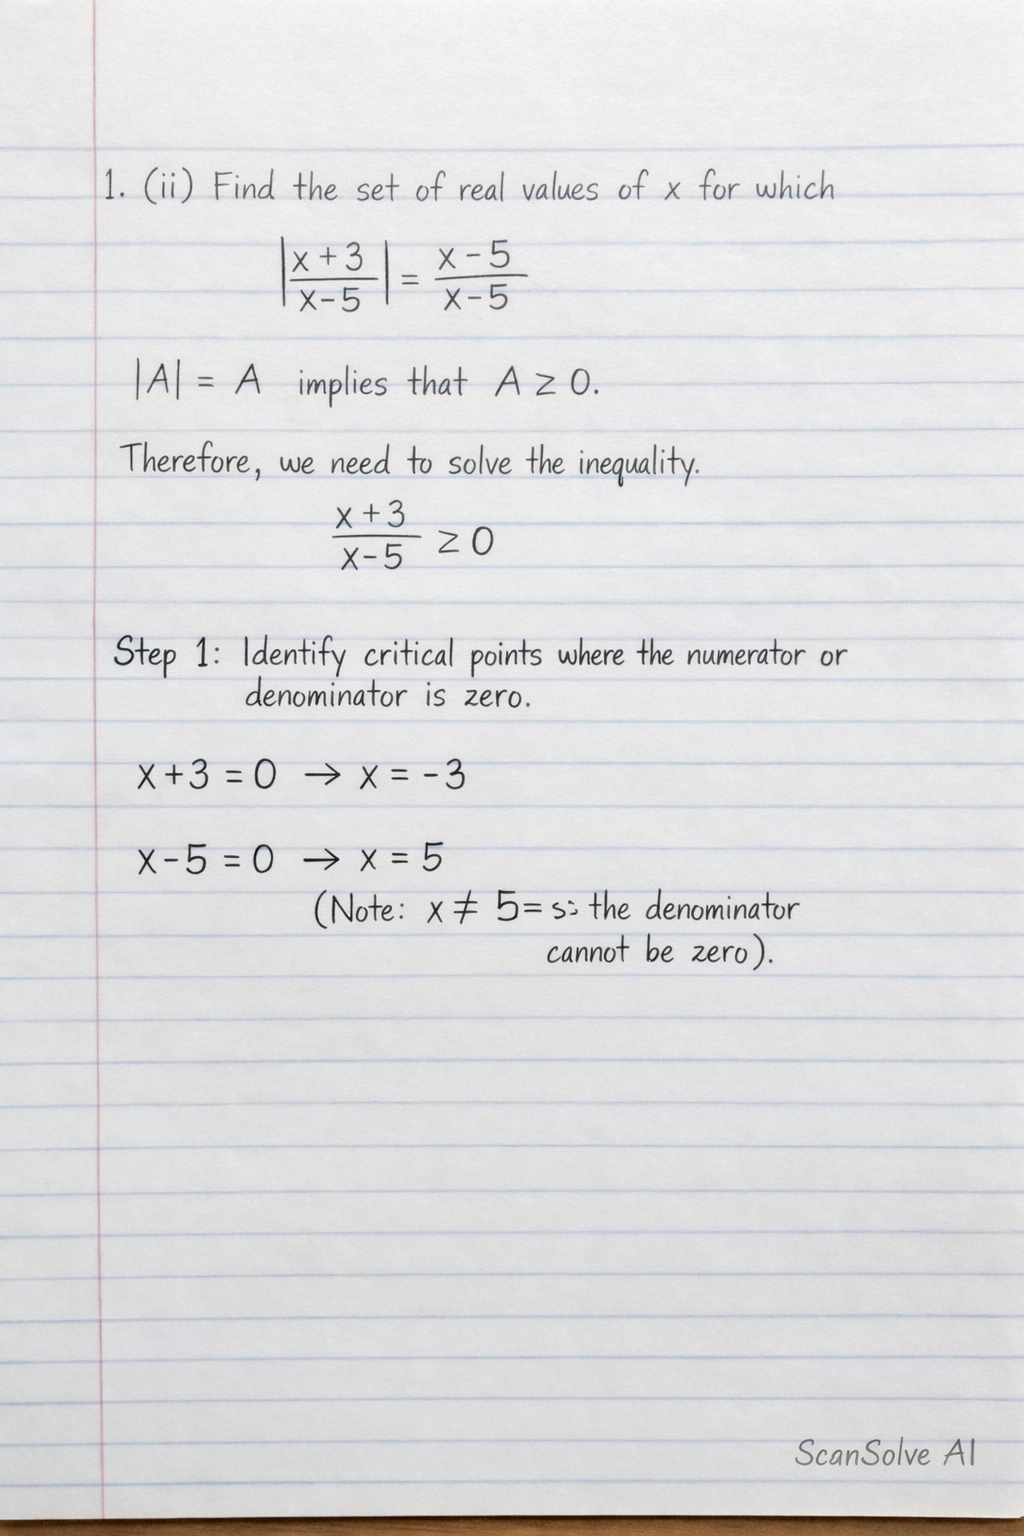 1. (ii) Find the set of real values of x for which
|x + 3 / x - 5| = x - 5 / x - 5
|A| = A implies that A ≥ 0.
Therefore, we need to solve the inequality.
x + 3 / x - 5 ≥ 0
Step 1: Identify critical points where the numerator or
denominator is zero.
x + 3 = 0 → x = -3
x - 5 = 0 → x = 5
(Note: x ≠ 5= the denominator
cannot be zero).
ScanSolve AI